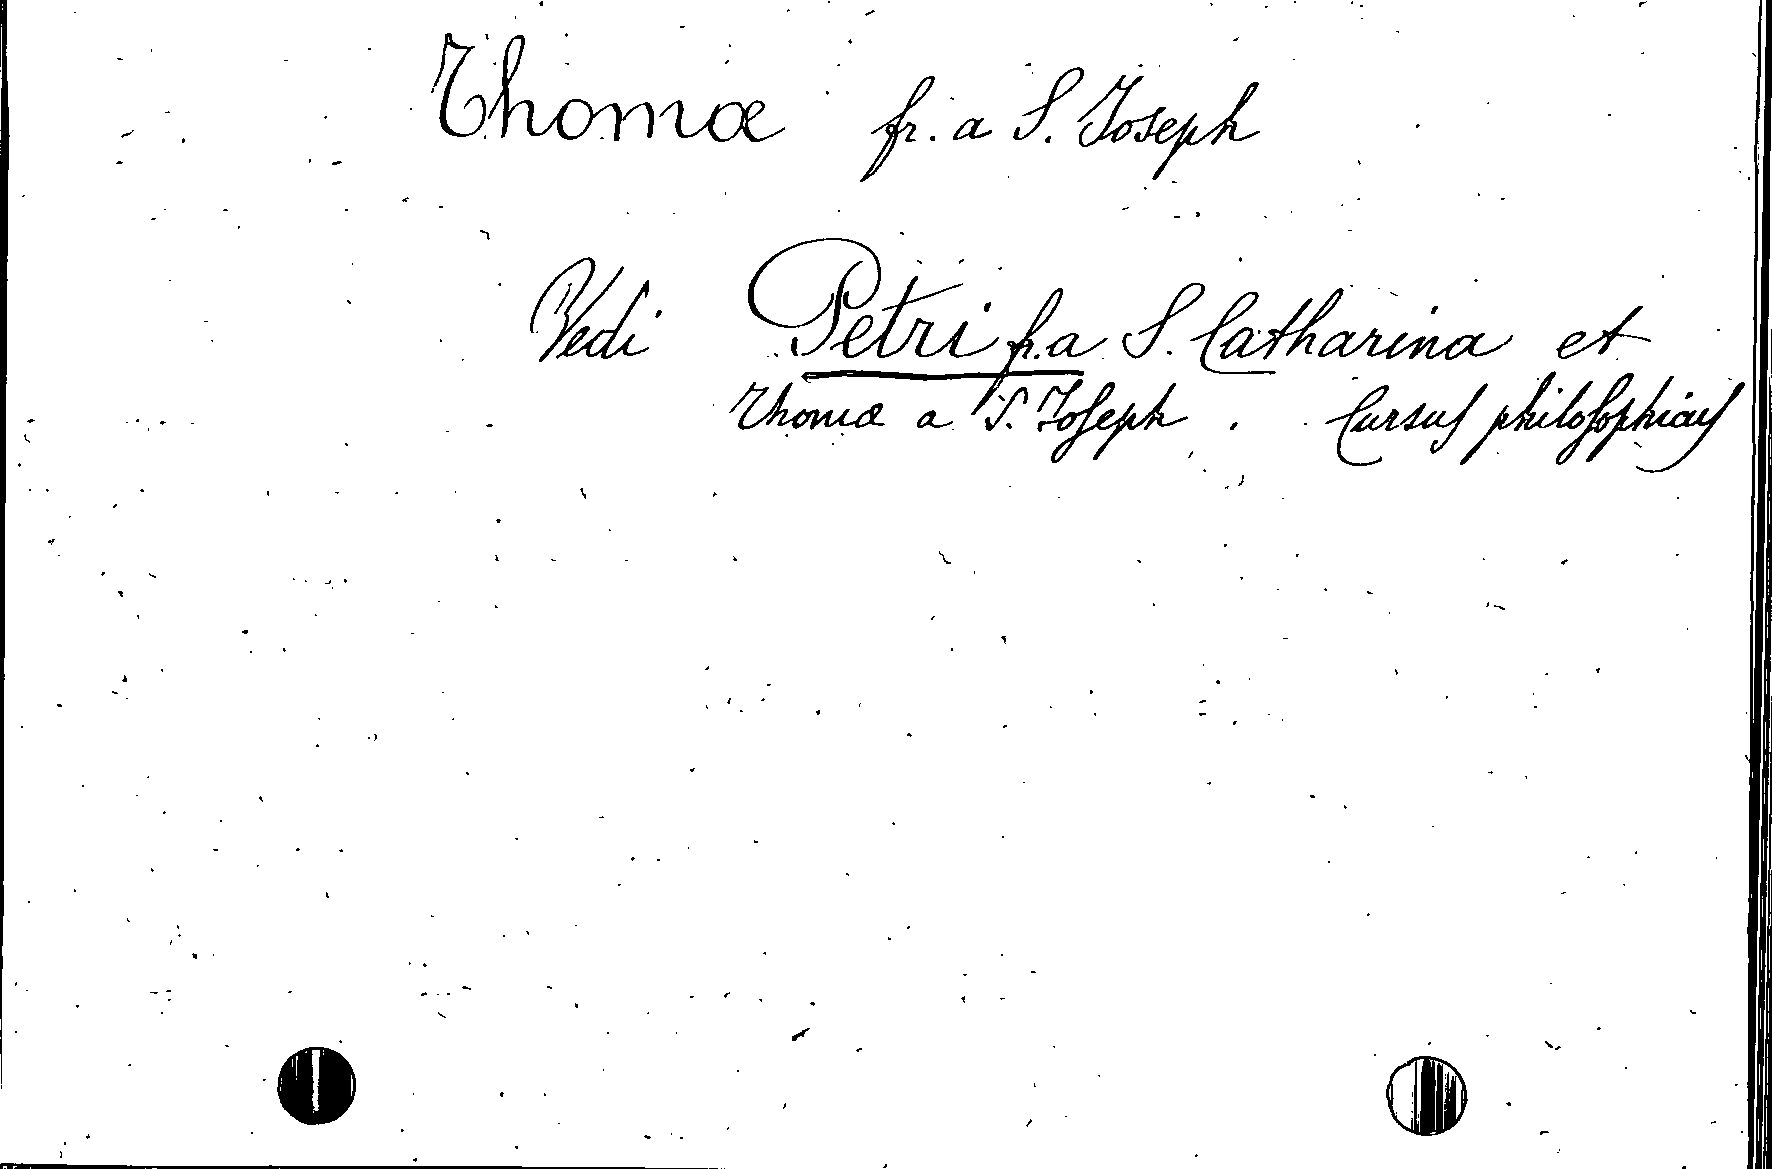 Thomæ fr. a S. Joseph
Vedi Petri fr. a S. Catharina et
Thomæ a S. Joseph. Cursus philosophicus